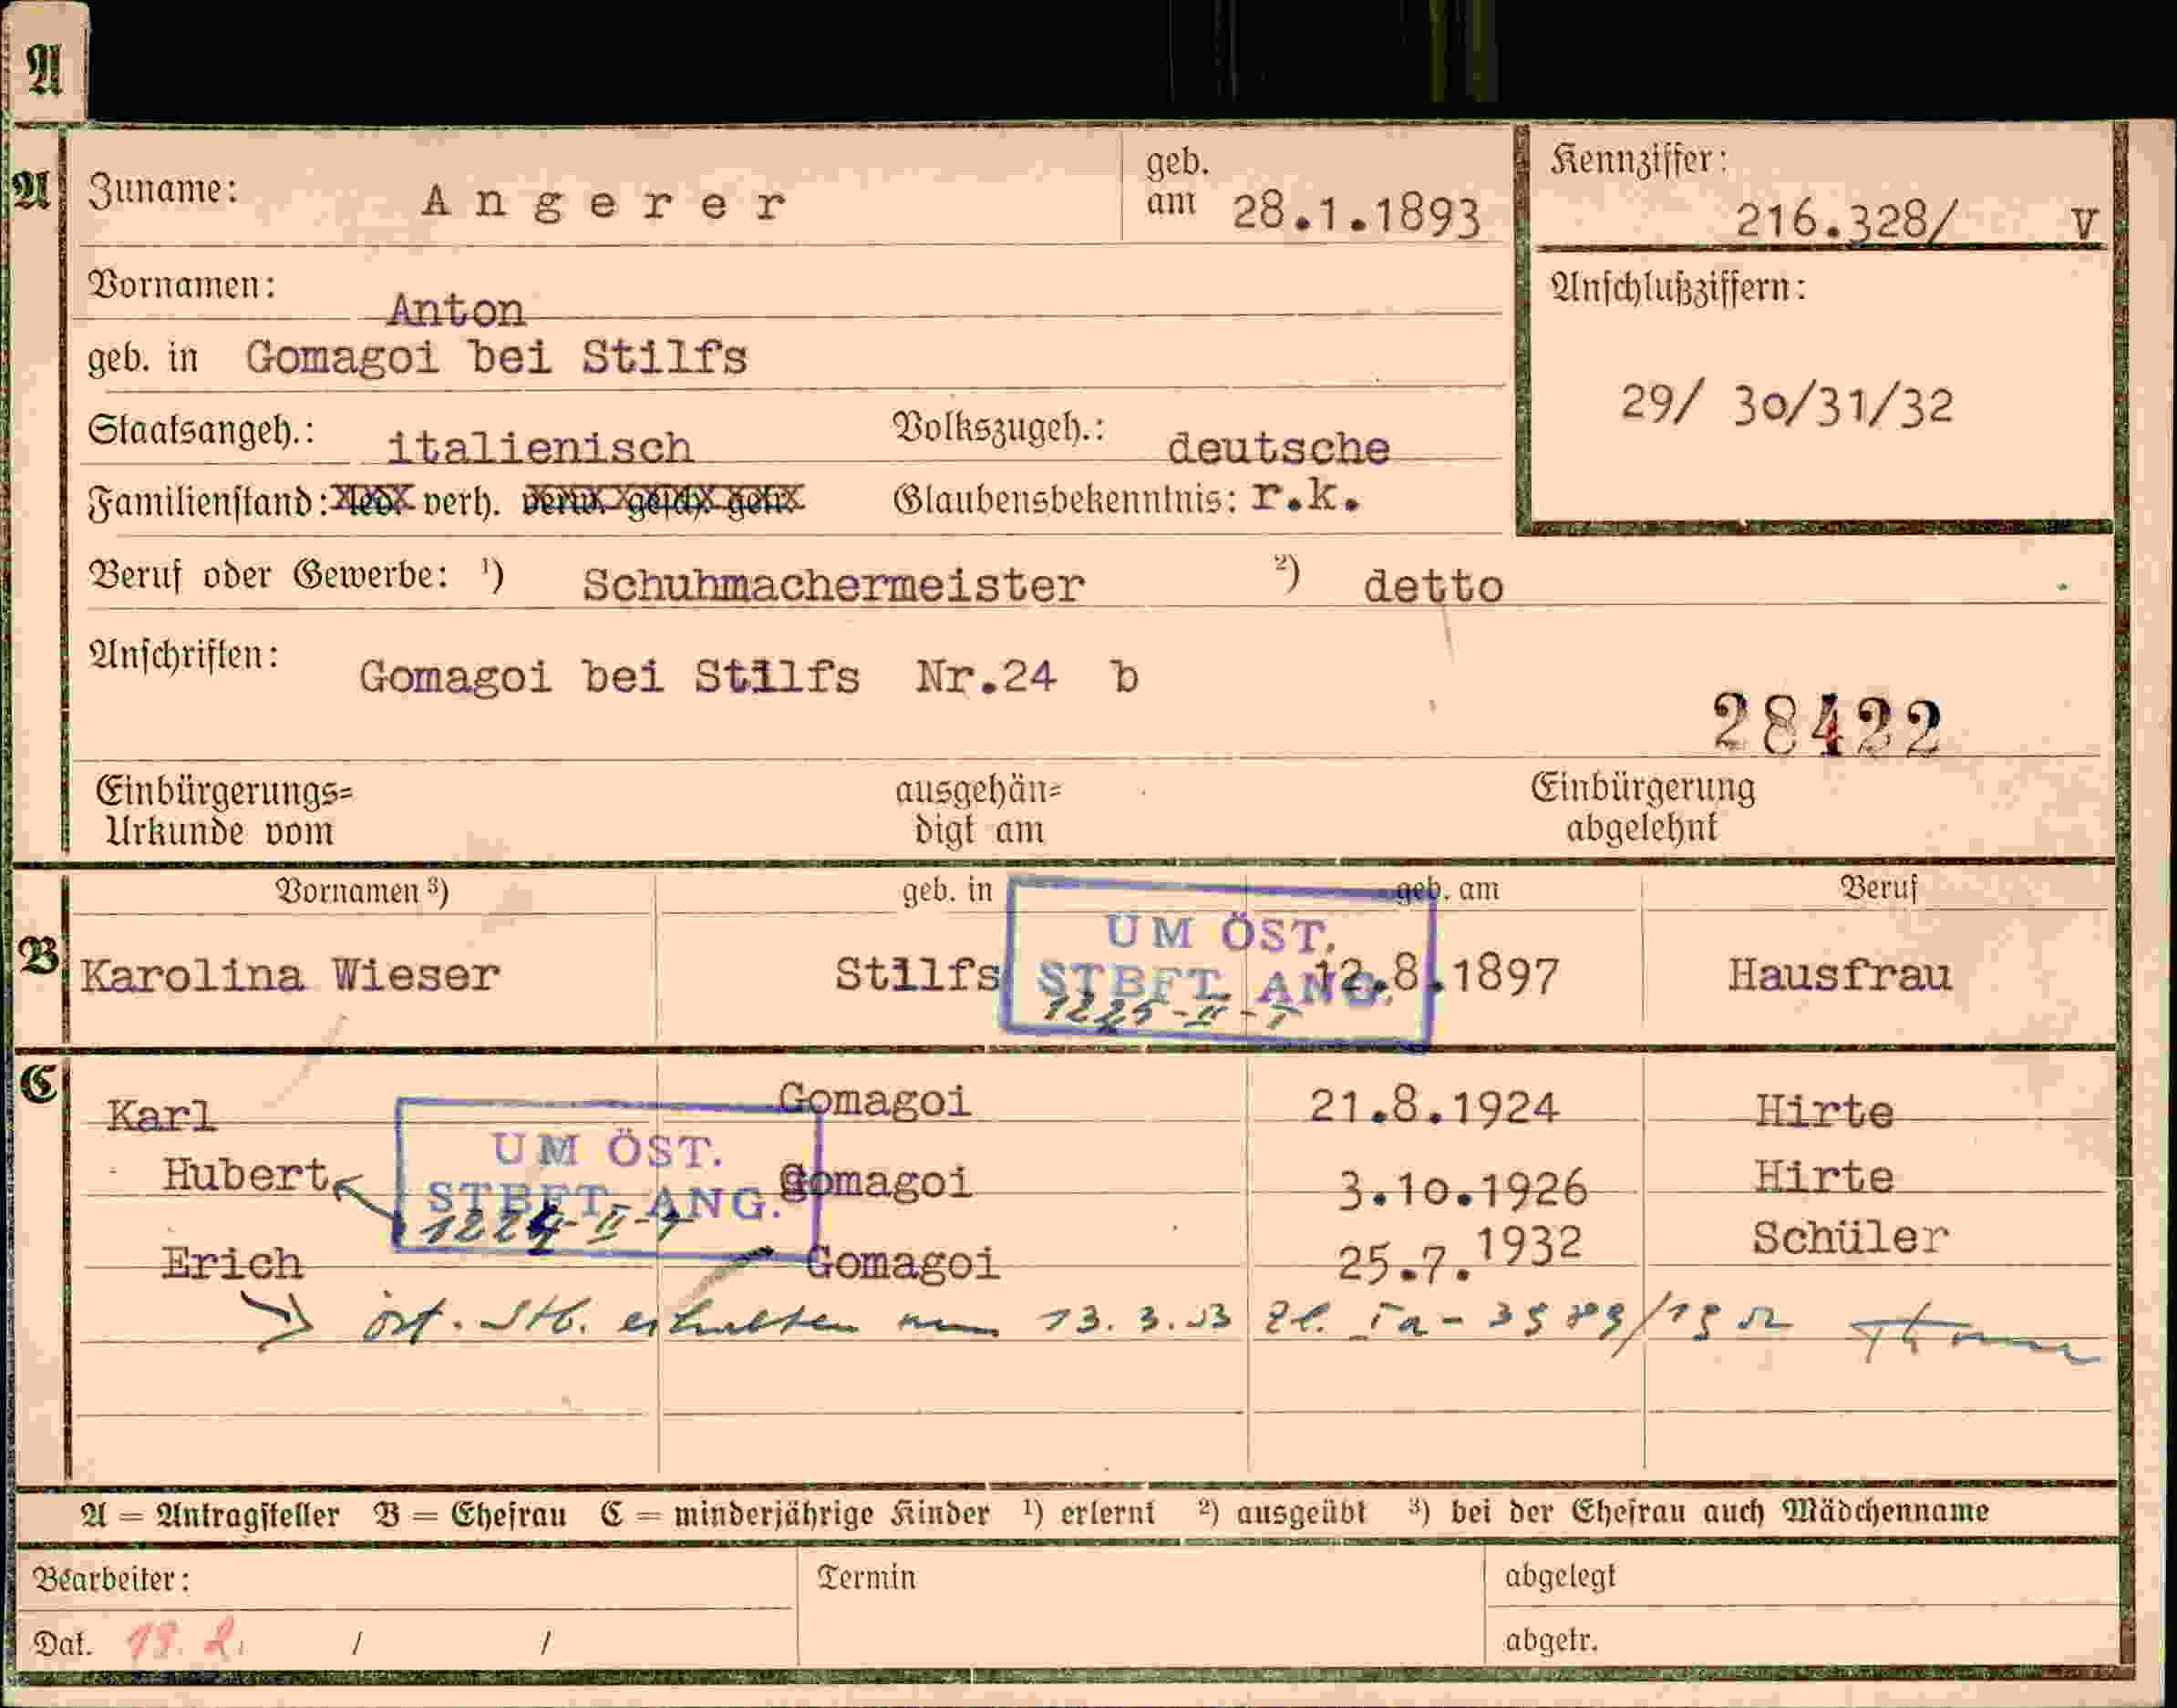 A
A Zuname: Angerer geb. am 28.1.1893 Kennziffer: 216.328/ V
Vornamen: Anton Anschlußziffern:
geb. in Gomagoi bei Stilfs 29/ 30/31/32
Staatsangeh.: italienisch Volkszugeh.: deutsche
Familienstand: led. verh. verw. gesch. getr. Glaubensbekenntnis: r.k.
Beruf oder Gewerbe: ¹) Schuhmachermeister ²) detto
Anschriften: Gomagoi bei Stilfs Nr.24 b
28422
Einbürgerungs= ausgehän= Einbürgerung
Urkunde vom digt am abgelehnt
Vornamen ³) geb. in geb. am Beruf
UM ÖST.
B Karolina Wieser Stilfs 12.8.1897 Hausfrau
STBFT. ANG.
1225-II-7
C Karl Gomagoi 21.8.1924 Hirte
UM ÖST.
Hubert Gomagoi 3.10.1926 Hirte
STBFT. ANG.
1224-II-7
Erich Gomagoi 25.7.1932 Schüler
öst. Stb. erhalten am 13.3.53 Zl. Ia-
A = Antragsteller B = Ehefrau C = minderjährige Kinder ¹) erlernt ²) ausgeübt ³) bei der Ehefrau auch Mädchenname
Bearbeiter: Termin abgelegt
Dat. 19.2. / / abgetr.